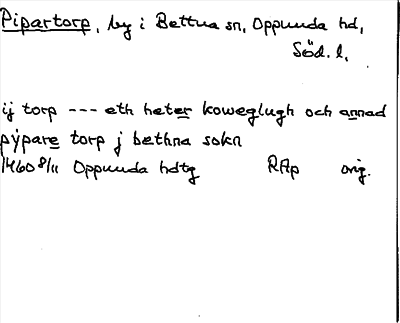 Pipartorp, by i Bettna sn, Oppunda hd,
Söd. l.
ij torp --- eth heter koweglugh och annad
pÿpare torp j bethna sokn
1460 8/11 Oppunda hdtg RAp orig.